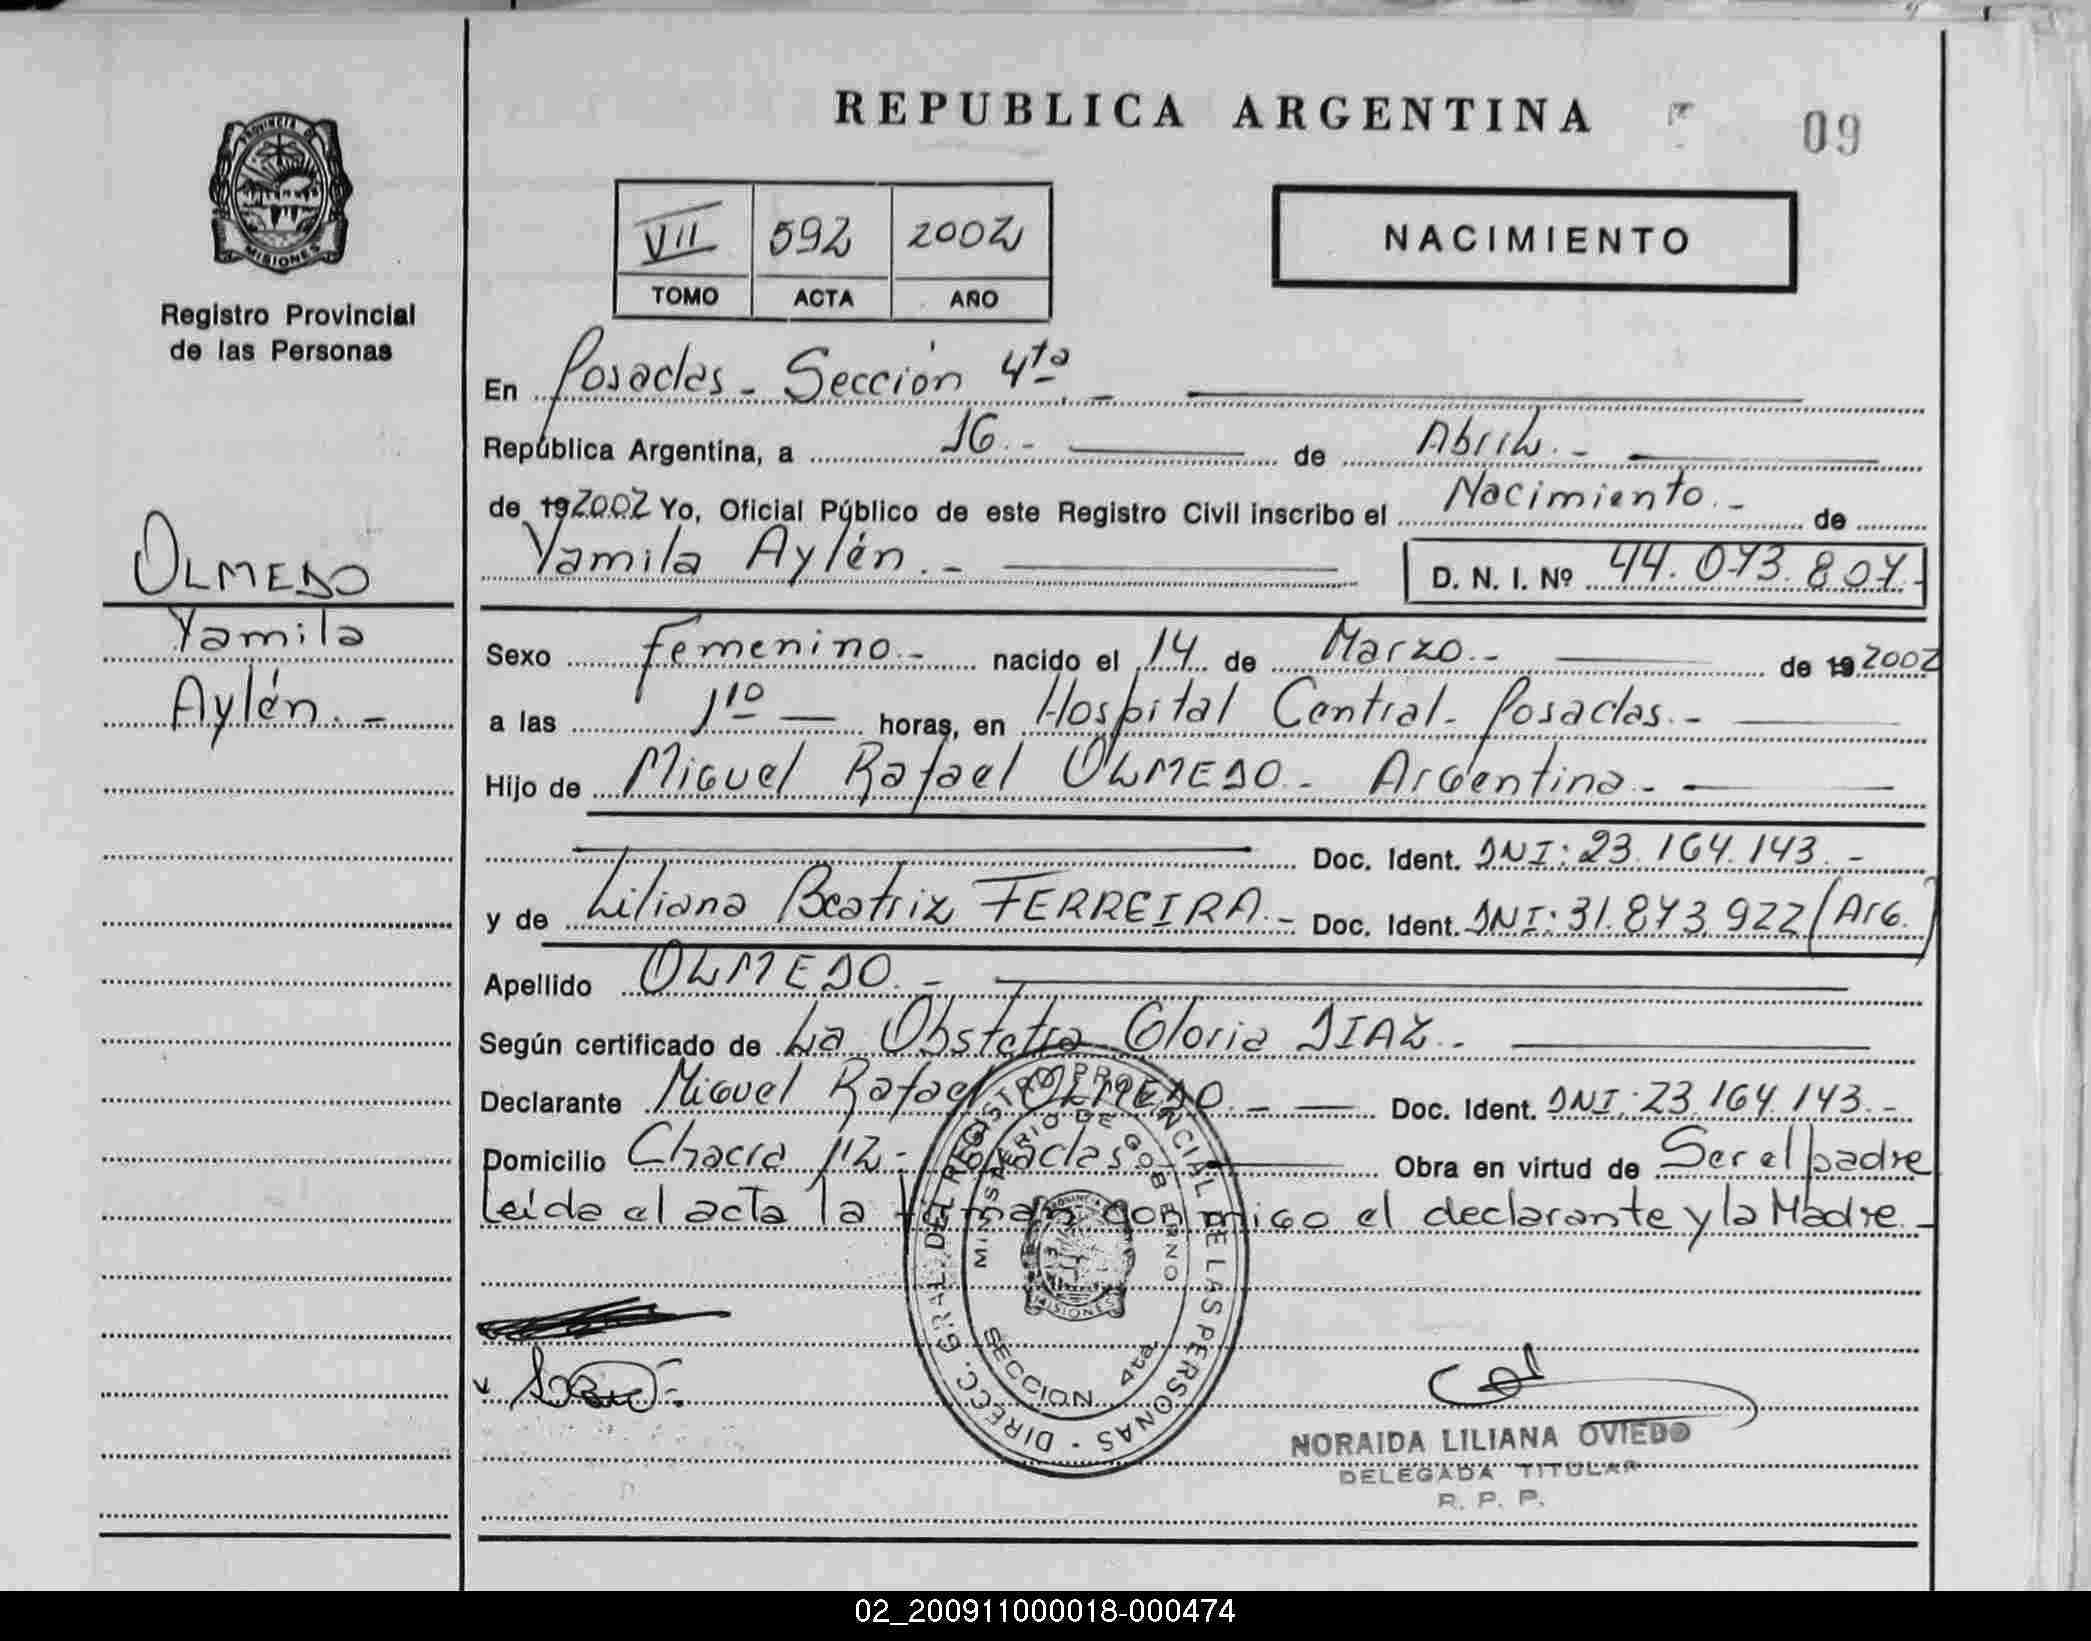 REPUBLICA ARGENTINA
09
PROVINCIA DE
MISIONES
Registro Provincial
de las Personas
VII 592 2002
TOMO ACTA AÑO
NACIMIENTO
En Posadas - Sección 4ta -
República Argentina, a 16.- de Abril.-
de 19 2002 Yo, Oficial Público de este Registro Civil inscribo el Nacimiento.- de
Yamila Aylén.- D. N. I. Nº 44.073.807.-
OLMEDO
Yamila
Aylén.-
Sexo femenino.- nacido el 14 de Marzo.- de 19 2002
a las 110 horas, en Hospital Central - Posadas.-
Hijo de Miguel Rafael OLMEDO - Argentina.-
Doc. Ident. DNI: 23.164.143.-
y de Liliana Beatriz FERREIRA.- Doc. Ident. DNI: 31.873.922 (Arg.)
Apellido OLMEDO.-
Según certificado de La Obstetra Gloria DIAZ.-
Declarante Miguel Rafael OLMEDO.- Doc. Ident. DNI: 23.164.143.-
Domicilio Chacra 112 - Posadas Obra en virtud de Ser el padre
Leida el acta la firman conmigo el declarante y la Madre.-
DIRECC. GRAL. DEL REGISTRO PROVINCIAL DE LAS PERSONAS -
MINISTERIO DE GOBIERNO
PROVINCIA
MISIONES
SECCION 4ta
NORAIDA LILIANA OVIEDO
DELEGADA TITULAR
R. P. P.
02_200911000018-000474